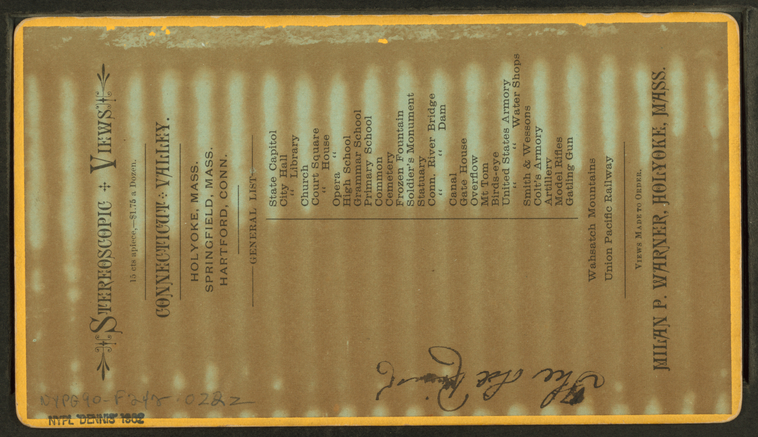 STEREOSCOPIC VIEWS
15 cts apiece,—$1.75 a Dozen.
CONNECTICUT VALLEY.
HOLYOKE, MASS.
SPRINGFIELD, MASS.
HARTFORD, CONN.
GENERAL LIST
State Capitol
City Hall
" Library
Church
Court Square
" House
Opera "
High School
Grammar School
Primary School
Common
Cemetery
Frozen Fountain
Soldier's Monument
Statuary
Conn. River Bridge
" " Dam
Canal
Gate House
Overflow
Mt Tom
Birds-eye
United States Armory
" " Water Shops
Smith & Wessons
Colt's Armory
Artillery
Model Rifles
Gatling Gun
Wahsatch Mountains
Union Pacific Railway
VIEWS MADE TO ORDER.
MILAN P. WARNER, HOLYOKE, MASS.
The Ice
NYPG90-F242 0222
NYPL "DENNIS" 1902